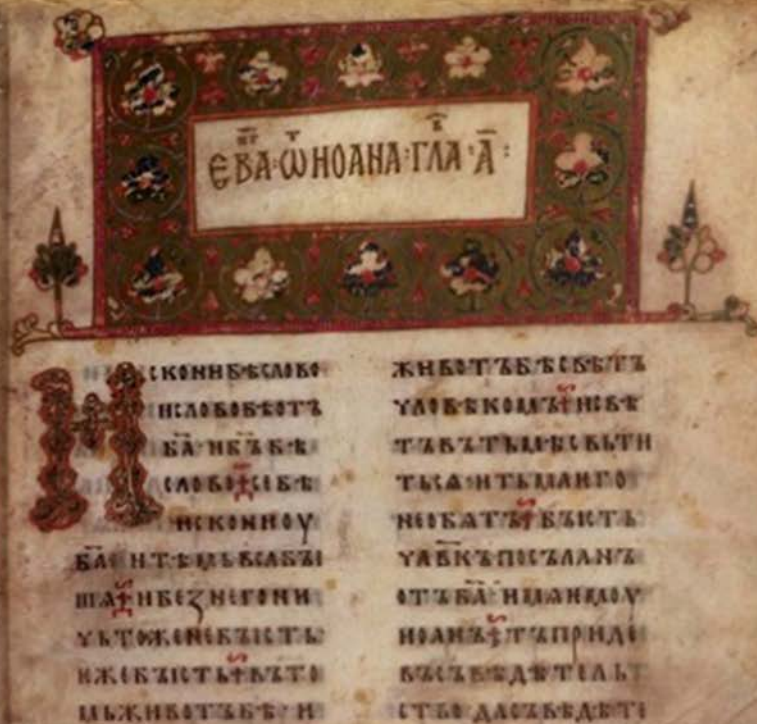 ЄВА҃·ѾИОАНА·ГЛА·А҃:
ИСКОНИБѢСЛОВО
ИСЛОВОБѢОТЪ
БА҃·ИБ҃ЪБѢ
СЛОВО·СЕБѢ
ИСКОНИОУ
БА҃·ИТѢМЬВСАБЪІ
ШѦ·ИБЕЗНЕГОНИ
ЧЬТОЖЕНЕБЪІСТЬ
ѤЖЕБЪІСТЬ·ВЪТО
МЬЖИВОТЪБѢ·И
ЖИВОТЪБѢСВѢТЪ
ЧЛОВѢКОМЪ·ИСВѢ
ТЪВЪТЬМѢСВЬТИ
ТЬСѦ·ИТЬМАѤГО
НЕОБѦТЪ·БЪІСТЬ
ЧЛ҃ВКЪПОСЪЛАНЪ
ОТЪБА҃·ИМѦѤМОУ
ИОАНЪ·ТЪПРИДЕ
ВЪСЪВѢДѢТЕЛЬ
СТВО·ДАСЪВѢДѢТЕ